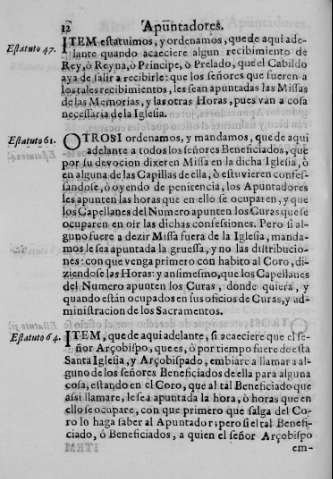 12 Apuntadores.
Estatuto 47. ITEM estatuimos, y ordenamos, que de aqui ade-
lante quando acaeciere algun recibimiento de
Rey, ò Reyna, ò Principe, ò Prelado, que el Cabildo
aya de salir a recibirle: que los señores que fueren a
los tales recibimientos, les sean apuntadas las Missas
de las Memorias, y las otras Horas, pues van a cosa
necessaria de la Iglesia.
Estatuto 61. OTROSI ordenamos, y mandamos, que de aqui
adelante a todos los señores Beneficiados, que
por su devocion dixeren Missa en la dicha Iglesia, ò
en alguna de las Capillas de ella, ò estuvieren confes-
sandose, ò oyendo de penitencia, los Apuntadores
les apunten las horas que en ello se ocuparen, y que
los Capellanes del Numero apunten los Curas que se
ocuparen en oir las dichas confessiones. Pero si al-
guno fuere a dezir Missa fuera de la Iglesia, manda-
mos le sea apuntada la gruessa, y no las distribucio-
nes: con que venga primero con habito al Coro, di-
ziendose las Horas: y ansimesmo, que los Capellanes
del Numero apunten los Curas, donde quiera, y
quando están ocupados en sus oficios de Curas, y ad-
ministracion de los Sacramentos.
Estatuto 64. ITEM, que de aqui adelante, si acaeciere que el se-
ñor Arçobispo, que es, ò por tiempo fuere desta
Santa Iglesia, y Arçobispado, embiare a llamar a al-
guno de los señores Beneficiados de ella para alguna
cosa, estando en el Coro, que al tal Beneficiado que
assi llamare, le sea apuntada la hora, ò horas que en
ello se ocupare, con que primero que salga del Co-
ro lo haga saber al Apuntador; pero si el tal Benefi-
ciado, ò Beneficiados, a quien el señor Arçobispo
em-